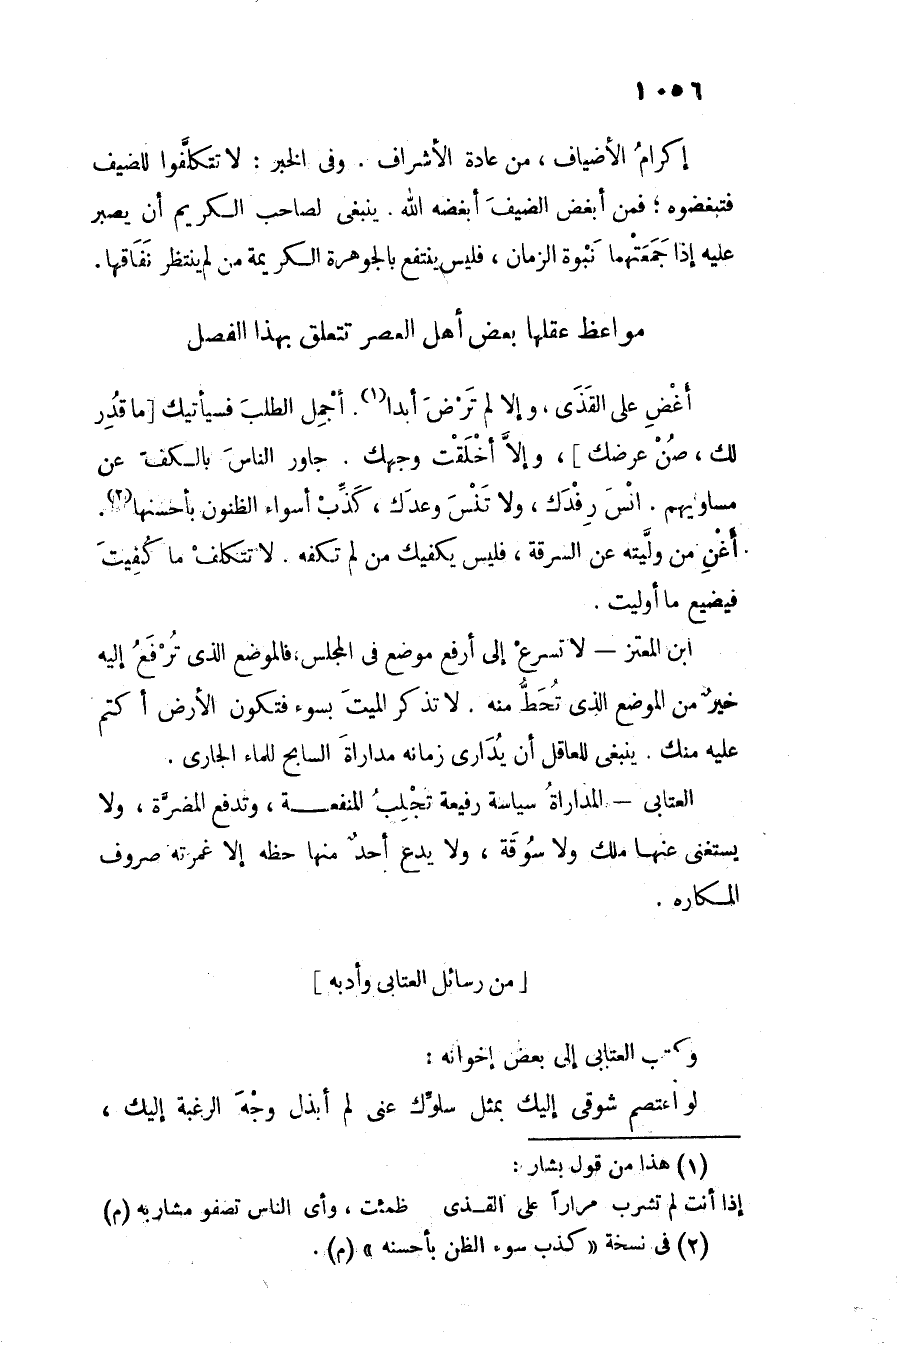 ١٠٥٦
إكرامُ الأضياف ، من عادة الأشراف . وفى الخبر : لا تتكلَّفوا للضيف
فتبغضوه ؛ فمن أبغض الضيفَ أبغضه الله . ينبغى لصاحب الكريم أن يصبر
عليه إذا جَمَعَتْهما نَبْوة الزمان ، فليس ينتفع بالجوهرة الكريمة من لم ينتظر نَفَاقها .
مواعظ عقلها بعض أهل العصر تتعلق بهذا الفصل
أغْضِ على القَذَى ، وإلا لم تَرْضَ أبدا(١) . أجْمِل الطلبَ فسيأتيك [ما قدُر
لك ، صُنْ عرضك ] ، وإلاَّ أخْلَقْت وجهك . جاور الناسَ بالكفّ عن
مساويهم . انْسَ رِفْدَك ، ولا تَنْسَ وعدَك ، كَذِّبْ أسواء الظنون بأحسنها(٢) .
أغْنِ من ولَّيته عن السرقة ، فليس يكفيك من لم تكفه . لا تتكلفْ ما كُفِيتَ
فيضيع ما أوليت .
ابن المعتز — لا تسرعْ إلى أرفع موضع فى المجلس ، فالموضع الذى تُرْفَعُ إليه
خيرٌ من الموضع الذى تُحَطُّ منه . لا تذكر الميتَ بسوء فتكون الأرض أكتم
عليه منك . ينبغى للعاقل أن يُدَارى زمانه مداراةَ السابح للماء الجارى .
العتابى — المداراةُ سياسة رفيعة تجْلِبُ المنفعة ، وتدفع المضرَّة ، ولا
يستغنى عنها ملك ولا سُوقَة ، ولا يدع أحدٌ منها حظه إلا غمرته صروف
المكاره .
[ من رسائل العتابى وأدبه ]
وكتب العتابى إلى بعض إخوانه :
لو اعتصم شوقى إليك بمثل سلوّك عنى لم أبذل وجْهَ الرغبة إليك ،
(١) هذا من قول بشار :
إذا أنت لم تشرب مراراً على القذى ظمئت ، وأى الناس تصفو مشاربه (م)
(٢) فى نسخة « كذب سوء الظن بأحسنه » (م) .